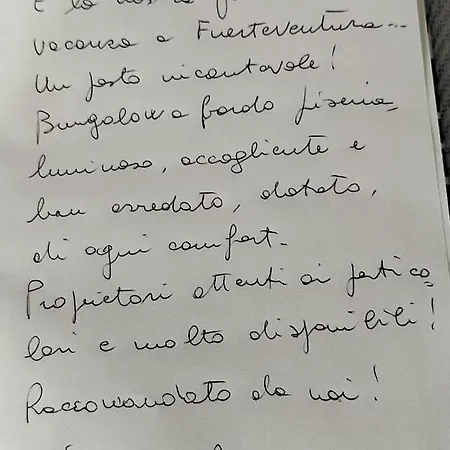 E la nostra
vacanza a Fuerteventura...
Un posto incantevole!
Bungalow a bordo piscina,
luminoso, accogliente e
ben arredato, dotato,
di ogni comfort.
Proprietari attenti ai partico=
lari e molto disponibili!
Raccomandato da noi!